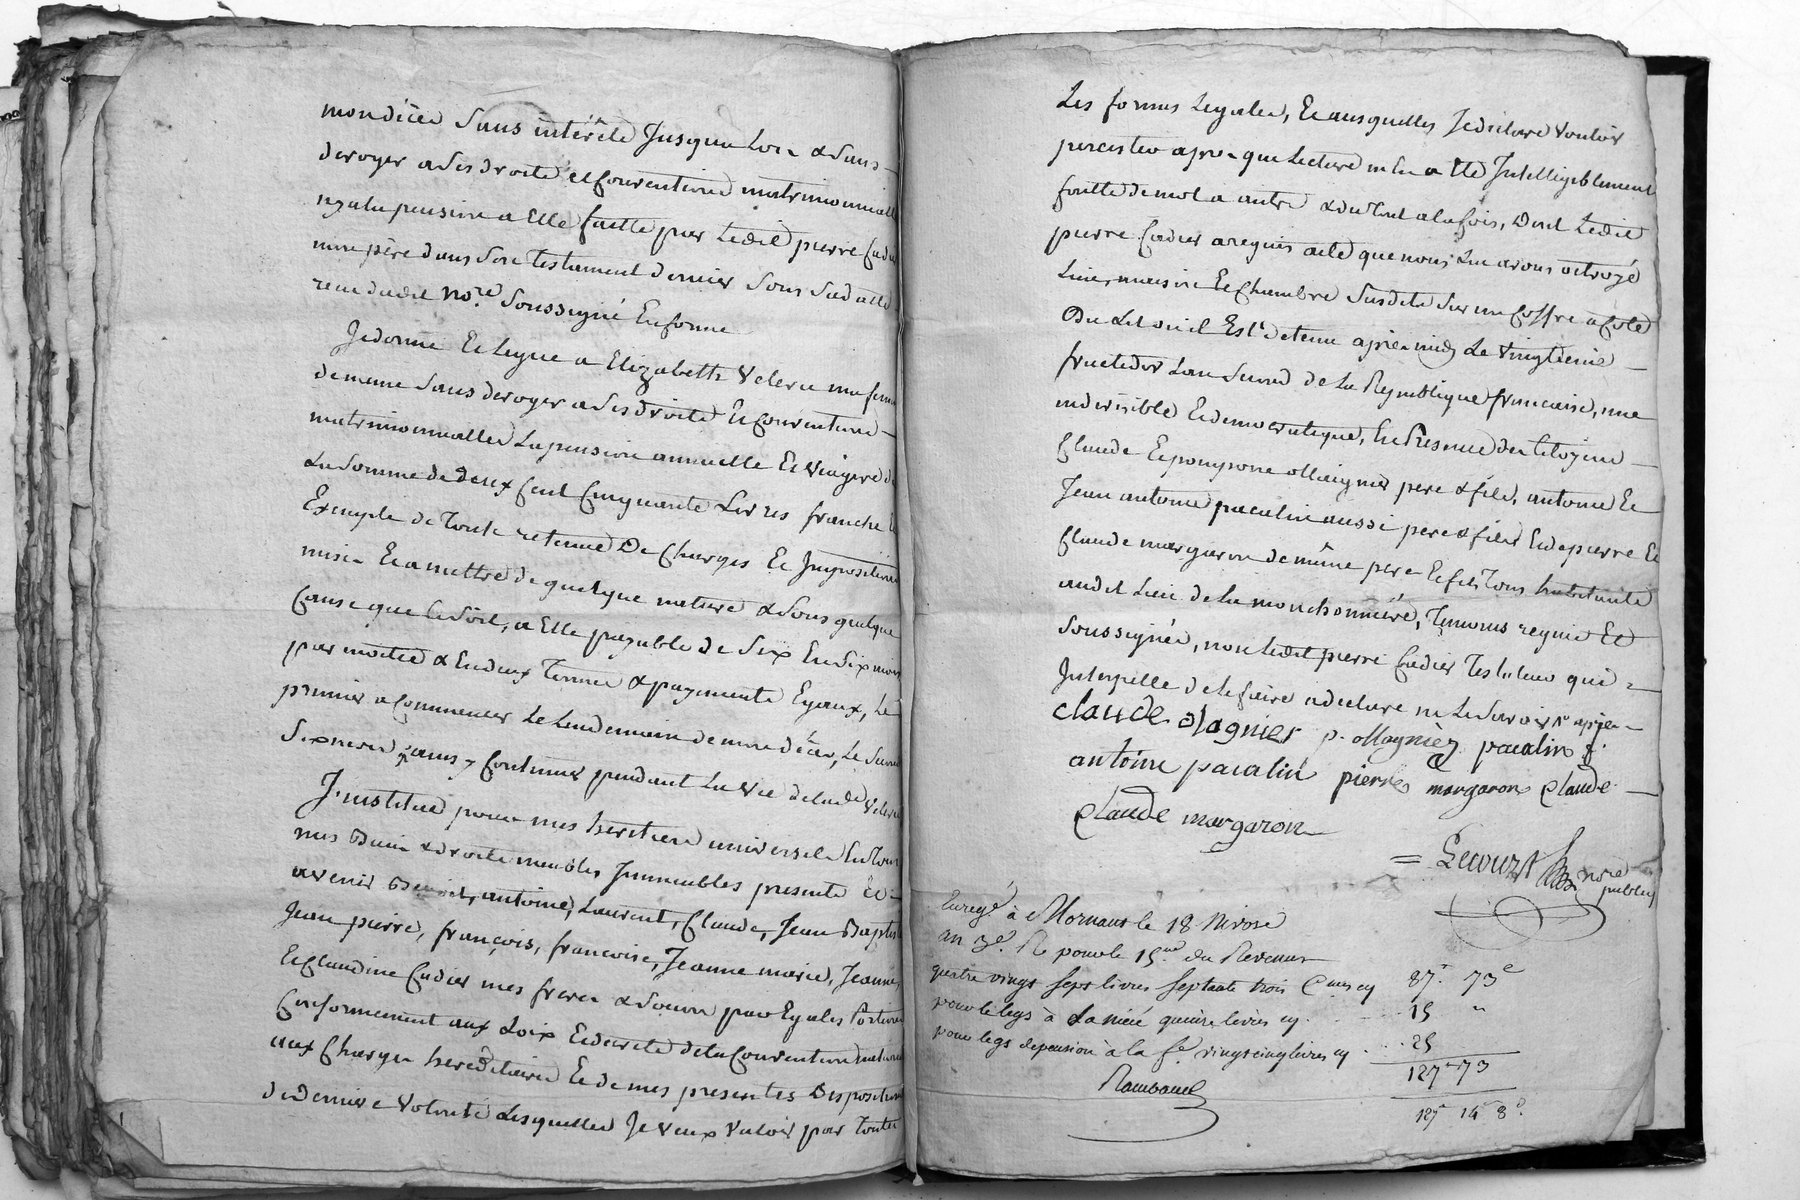 mon décèd sans intérêtd Jusqualore & sans
deroger a ses droitd et Conventiond matrimonnialle
ny a la pension a Elle faitte par Ledit pierre Cadie
mon père dans son Testament dernier sous sa datte
recu dudit No.re soussigné En forme
Je donne Et legue a Elizabeth Velera ma femme
de meme sans deroger a ses droitd Et Conventiond
matrimonnialles La pension annuelle Et Viagere de
La somme de deux Cent Cinquante Livres franche Et
Exempte de Toute retenue De Charges Et Imposition
mise Et a mettre de quelque nature & sous quelque
Cause que Ce soit, a Elle payable de Six En Six mois
par moitié & En deux Termes & payments Egaux, Le
premier a Commencer Le Lendemain de mon décès, Le second
Six mois apres, & Continuer pendant La vie de lad Velera
J'institue pour mes heritiers universels En Tous
mes Biens & droits meubles Immeubles presents Et
avenir Benoit, antoine, Laurent, Claude, Jean Baptiste
Jean pierre, françois, francoise, Jeanne marie, Jeanne,
Et Claudine Cadier mes freres & Soeurs par Egales Portions
Conformement aux Loix Et decrets de la Convention nationale
aux Charges hereditaires Et de mes presentes Dispositions
de dernière Volonté Lesquelles Je veux valoir par Toutes
Les formes Legales, Et ausquelles Je declare vouloir
percister apres que Lecture m'en a Eté Intelligiblement
faitte de mot a autre & du Tout a la fois, Dont Ledit
pierre Cadier a requis acte que nous Lui avons octroyé
Lieu, maison Et Chambre Susdits Sur un Coffre a Coté
Du Lit ou il Est detenu après midy Le vingtieme
fructidor Lan Second de La Republique francaise, une
indivisible Et democratique, En Presence des Citoyens
Claude Et ponpone ollagnier pere & fils, antoine Et
Jean antoine pacalin aussi pere & fils Et de pierre Et
Claude margaron de même pere Et fils Tous habitants
audit Lieu de la monchonnière, Temoins requis Et
Soussignés, non Ledit pierre Cadier Testateur qui
Interpellé de le faire a declaré ne Le Savoir
claude olagnier p. ollagnier pacalin f.
antoine pacalin pierre margaron claude
claude margaron
= Lecourt No.re public
Enregé à Mornant le 18 Nivose
an 3e. R pour le 15me du Revenu
quatre vingt sept livres septante trois C.mes cy 87tt 73c
pour le legs à La niéce quinze livres cy. 15 "
pour legs de pension à la fe. vingt cinq livres cy 25
127tt 73
127tt 14s 8d.